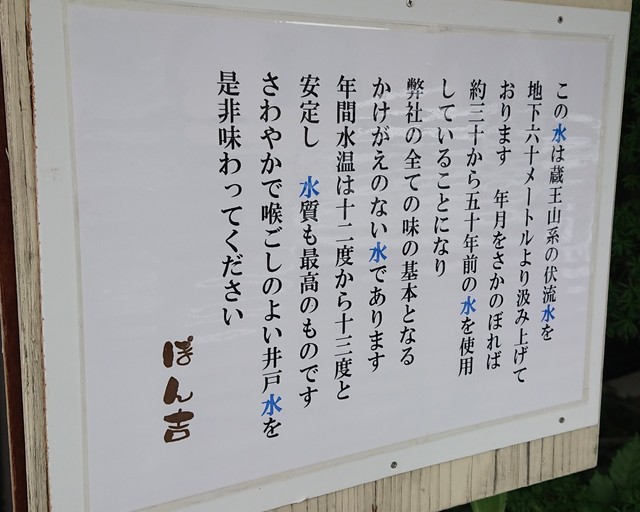 この水は蔵王山系の伏流水を
地下六十メートルより汲み上げて
おります　年月をさかのぼれば
約三十から五十年前の水を使用
していることになり
弊社の全ての味の基本となる
かけがえのない水であります
年間水温は十二度から十三度と
安定し　水質も最高のものです
さわやかで喉ごしのよい井戸水を
是非味わってください
ぽん吉